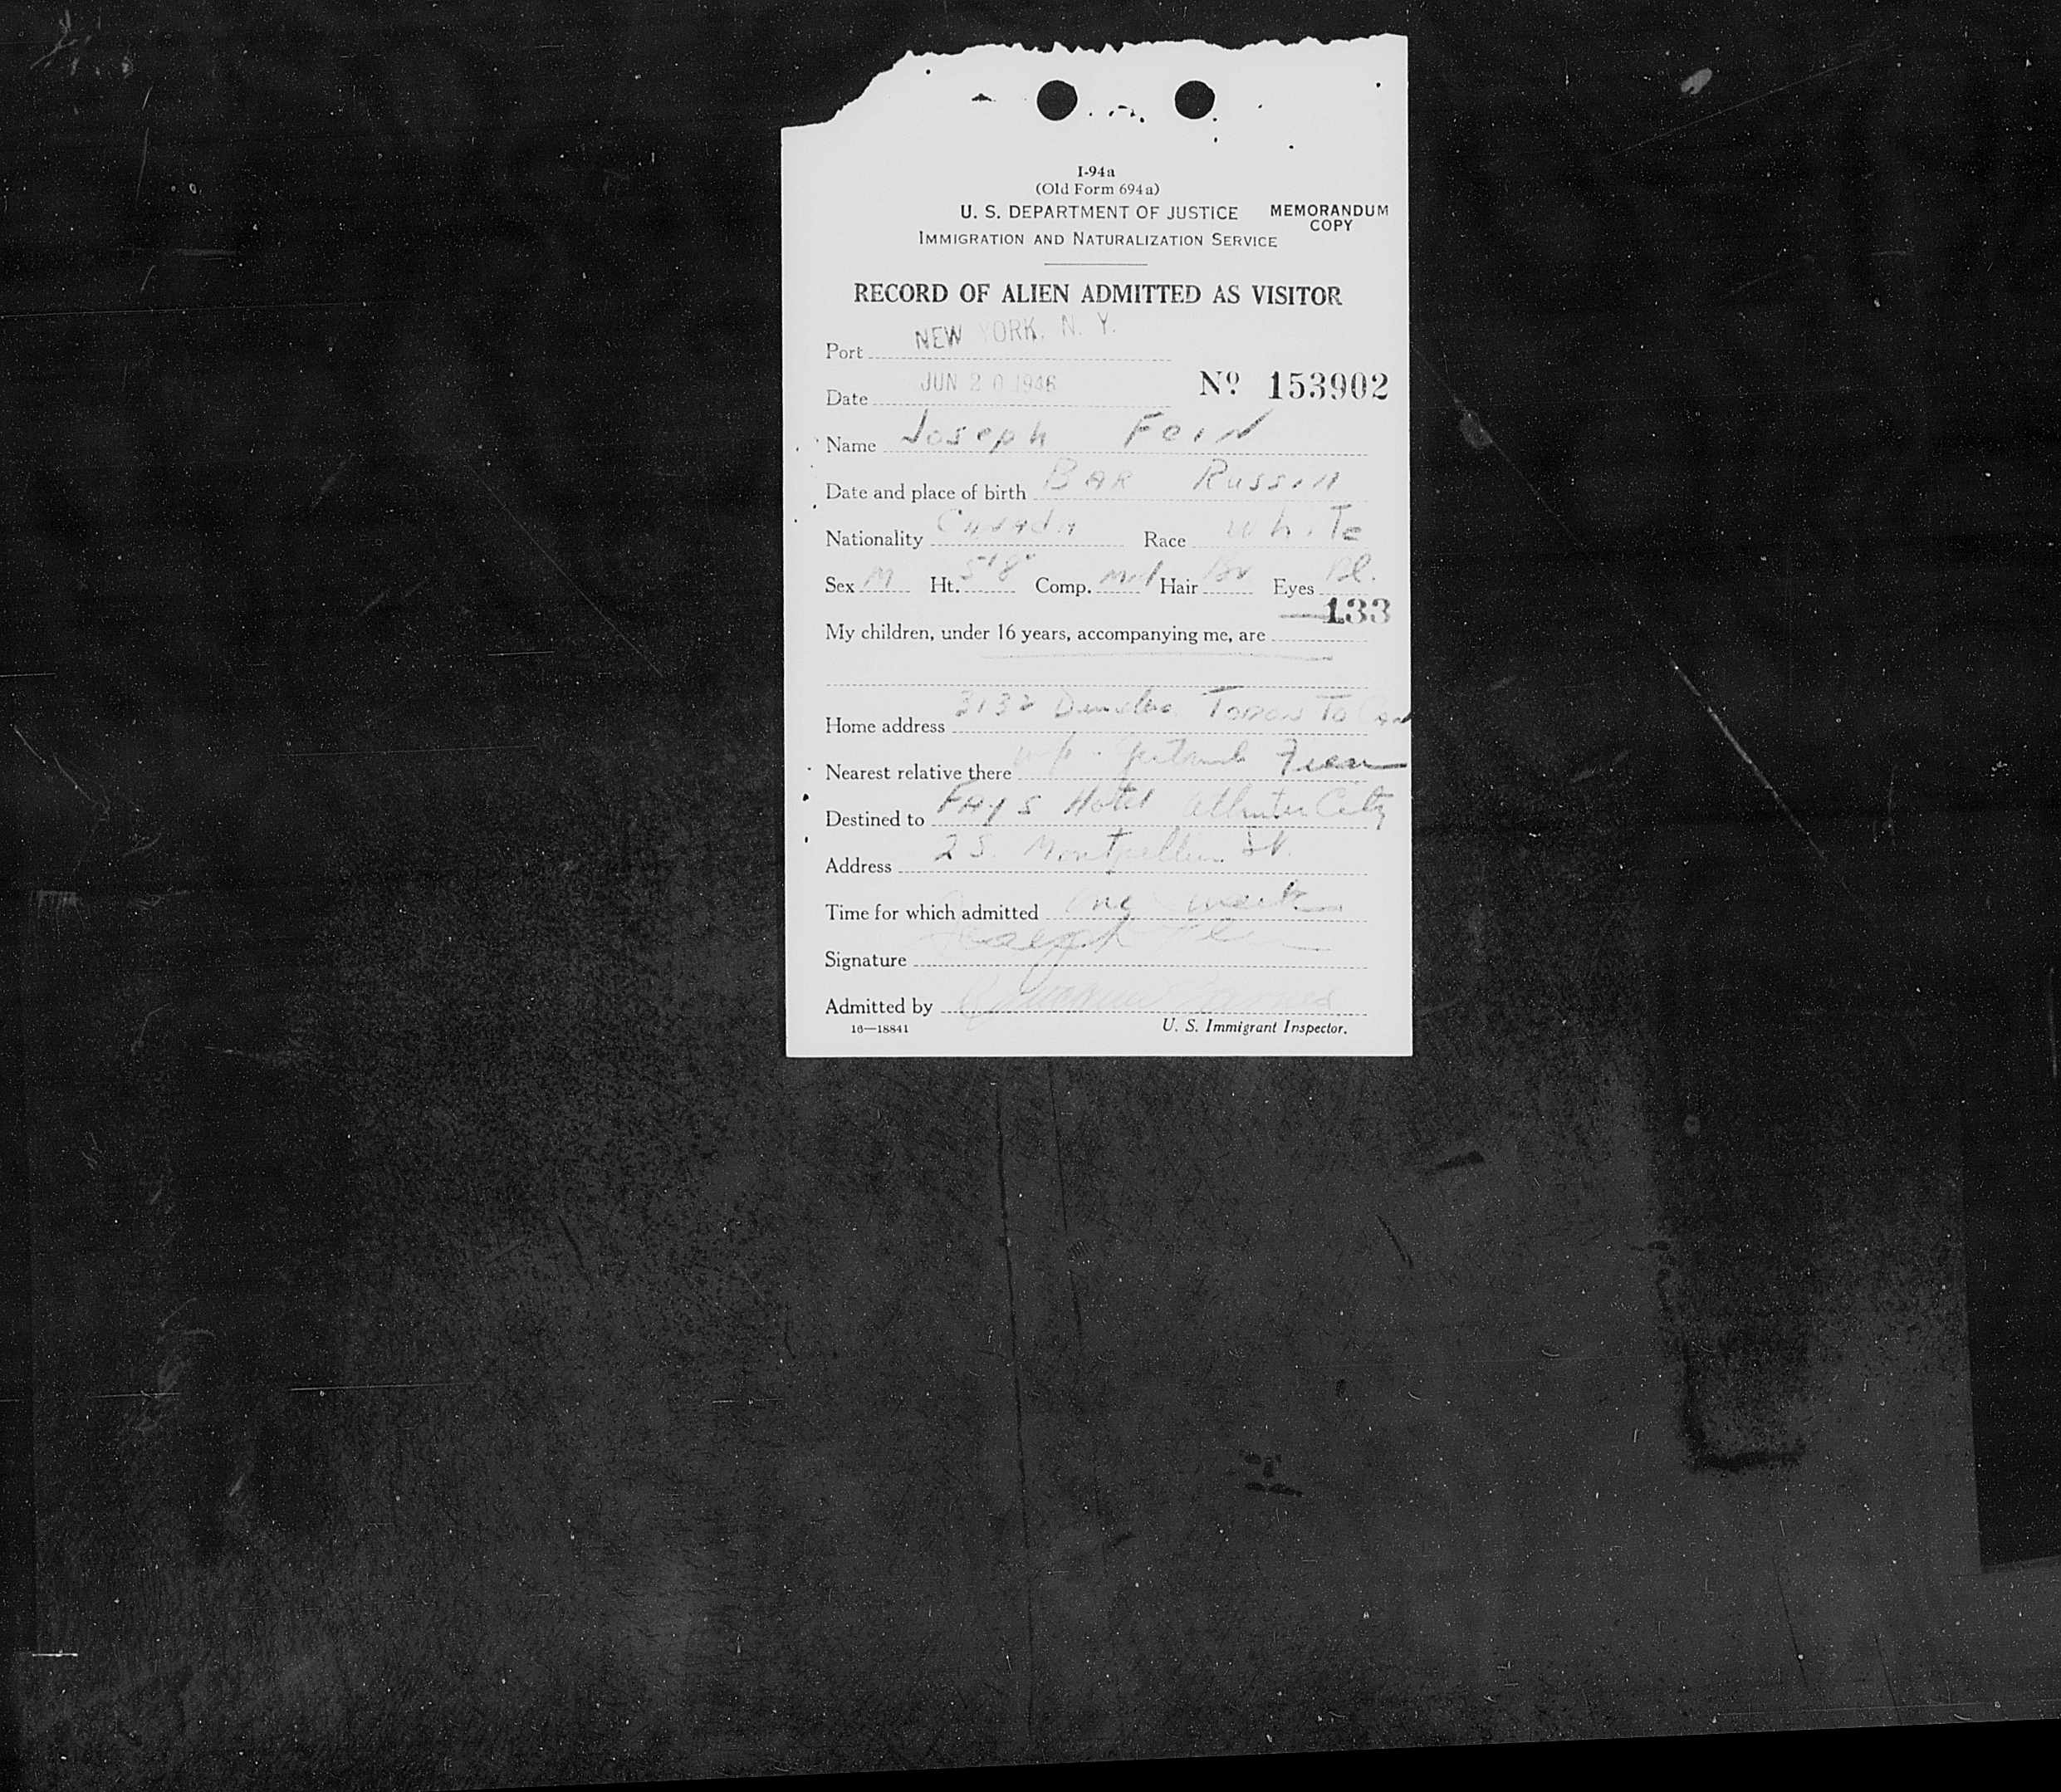 I-94a
(Old Form 694a)
U. S. DEPARTMENT OF JUSTICE
MEMORANDUM COPY
IMMIGRATION AND NATURALIZATION SERVICE
RECORD OF ALIEN ADMITTED AS VISITOR
Port NEW YORK, N. Y.
Date JUN 20 1946 No 153902
Name Joseph Fein
Date and place of birth BAR Russia
Nationality Canada Race White
Sex M Ht. 5'8" Comp. Med Hair Br Eyes Bl.
133
My children, under 16 years, accompanying me, are
Home address 3132 Dundas Toronto Can
Nearest relative there Fein
Destined to FAYS Hotel Atlantic City
Address 2 S. Montpellier St.
Time for which admitted one week
Signature Joseph Fein
Admitted by
16—18841 U. S. Immigrant Inspector.